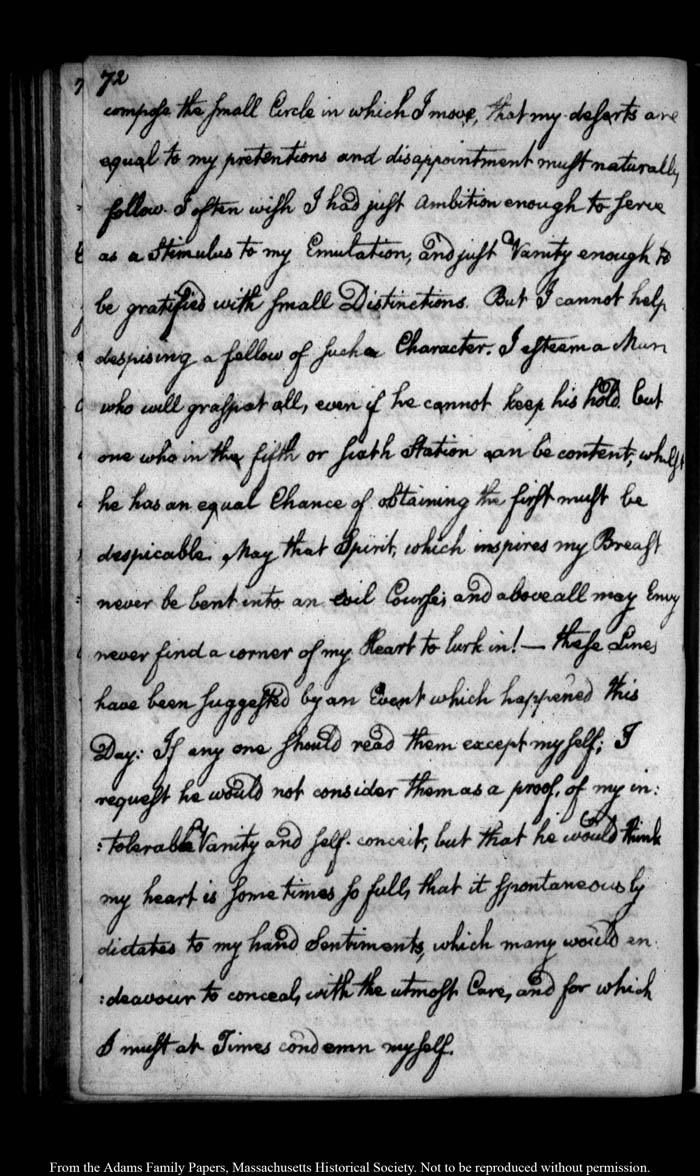 72
compose the small Circle in which I move, that my deserts are
equal to my pretentions and disappointment must naturally
follow. I often wish I had just Ambition enough to serve
as a Stimulus to my Emulation, and just Vanity enough to
be gratified with small Distinctions. But I cannot help
despising a fellow of such a Character. I esteem a Man
who will grasp at all, even if he cannot keep his hold but
one who in the fifth or sixth Station can be content, whilst
he has an equal Chance of obtaining the first must be
despicable. May that Spirit, which inspires my Breast
never be bent into an evil Course; and above all may Envy
never find a corner of my Heart to lurk in! — these Lines
have been suggested by an Event which happened this
Day: If any one should read them except myself; I
request he would not consider them as a proof, of my in:
:tolerable Vanity and self-conceit, but that he would think
my heart is sometimes so full, that it spontaneously
dictates to my hand Sentiments, which many would en
:deavour to conceal, with the utmost Care, and for which
I must at Times condemn myself.
From the Adams Family Papers, Massachusetts Historical Society. Not to be reproduced without permission.